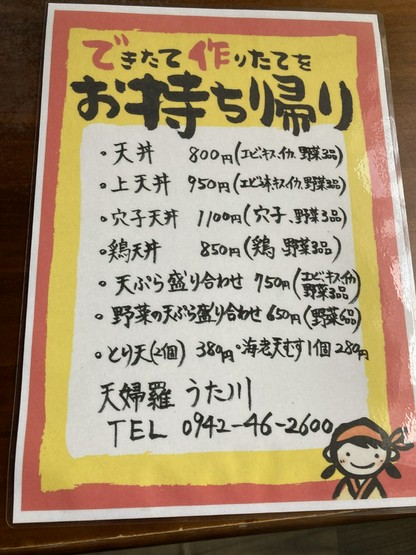 できたて作りたてを
お持ち帰り
・天丼 800円(エビ、キス、イカ、野菜3品)
・上天丼 950円(エビ2本、キス、イカ、野菜3品)
・穴子天丼 1100円(穴子、野菜3品)
・鶏天丼 850円(鶏、野菜3品)
・天ぷら盛り合わせ 750円(エビ、キス、イカ 野菜3品)
・野菜の天ぷら盛り合わせ 650円(野菜6品)
・とり天(2個) 380円・海老天むす1個280円
天婦羅 うた川
TEL 0942-46-2600